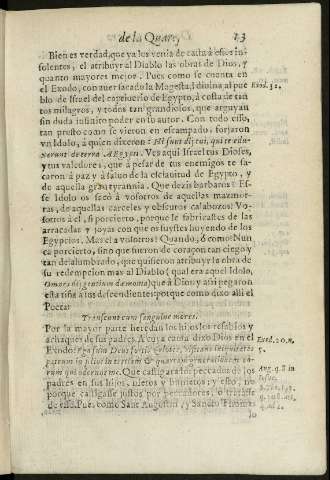 de la Quare, 23
Bien es verdad, que ya los venia de casta à estos in-
solentes, el atribuyr al Diablo las obras de Dios, y
quanto mayores mejor. Pues como se cuenta en
el Exodo, con auer sacado la Magestad diuina al pue Exod. 32.
blo de Israel del captiuerio de Egypto, à costa de tan
tos milagros, y todos tan grandiosos, que arguyan
sin duda infinito poder en su autor. Con todo esso,
tan presto como se vieron en escampado, forjaron
vn Idolo, à quien dixeron: Isti sunt dij tui, qui te edu-
xerunt de terra Aegypti. Ves aqui Israel tus Dioses,
y tus valedores, que à pesar de tus enemigos te sa-
caron à paz y à saluo de la esclauitud de Egypto, y
de aquella gran tyrannia. Que dezis barbaros? Es-
se Idolo os sacò à vosotros de aquellas mazmor-
ras, de aquellas carceles y obscuros calabozos? Vo-
sotros à el, si por cierto, porque le fabricastes de las
arracadas y joyas con que os fuystes huyendo de los
Egypcios. Mas el a vosotros? Quando, ò como? Nun
ca por cierto, sino que fueron de coraçon tan ciego y
tan deslumbrado, que quisieron atribuyr la obra de
su redempcion mas al Diablo (qual era aquel Idolo,
Omnes dij gentium dæmonia) que à Dios y assi pegaron
esta tiña à los descendientes: porque como dixo alli el
Poeta:
Transeunt cum sanguine mores.
Por la mayor parte heredan los hijos los resabios y
achaques de sus padres. A cuya causa dixo Dios en el
Exodo: Ego sum Deus fortis zelotes, visitans iniquitates Exod. 20. n.
patrum in filios in tertiam & quartam generationem eo- 5.
rum qui oderunt me. Que castigara los peccados de los Aug. q. 8 in
padres en sus hijos, nietos y bisnietos; y esto, no
porque castigasse justos por peccadores, ò tratasse
de esso. Pues como Sant Augustin, y Sancto Thomas
lo